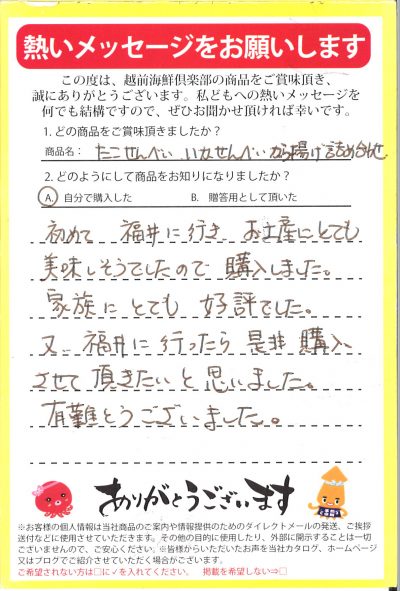 熱いメッセージをお願いします
この度は、越前海鮮倶楽部の商品をご賞味頂き、
誠にありがとうございます。私どもへの熱いメッセージを
何でも結構ですので、ぜひお聞かせ頂ければ幸いです。
1. どの商品をご賞味頂きましたか？
商品名： たこせんべい いかせんべい から揚げ詰め合せ
2. どのようにして商品をお知りになりましたか？
A. 自分で購入した B. 贈答用として頂いた
初めて 福井に行き お土産にとても
美味しそうでしたので 購入しました。
家族に とても 好評でした。
又 福井に 行ったら 是非 購入
させて 頂きたい と 思いました。
有難とうございました。
ありがとうございます
※お客様の個人情報は当社商品のご案内や情報提供のためのダイレクトメールの発送、ご挨拶
送付などに使用させていただきます。その他の目的に使用したり、外部に開示することは一切
ございませんので、ご安心ください。※皆様からいただいたお声を当社カタログ、ホームページ
又はブログでご紹介させていただく場合がございます。
ご希望されない方は□に✓を入れてください。 掲載を希望しない⇒□